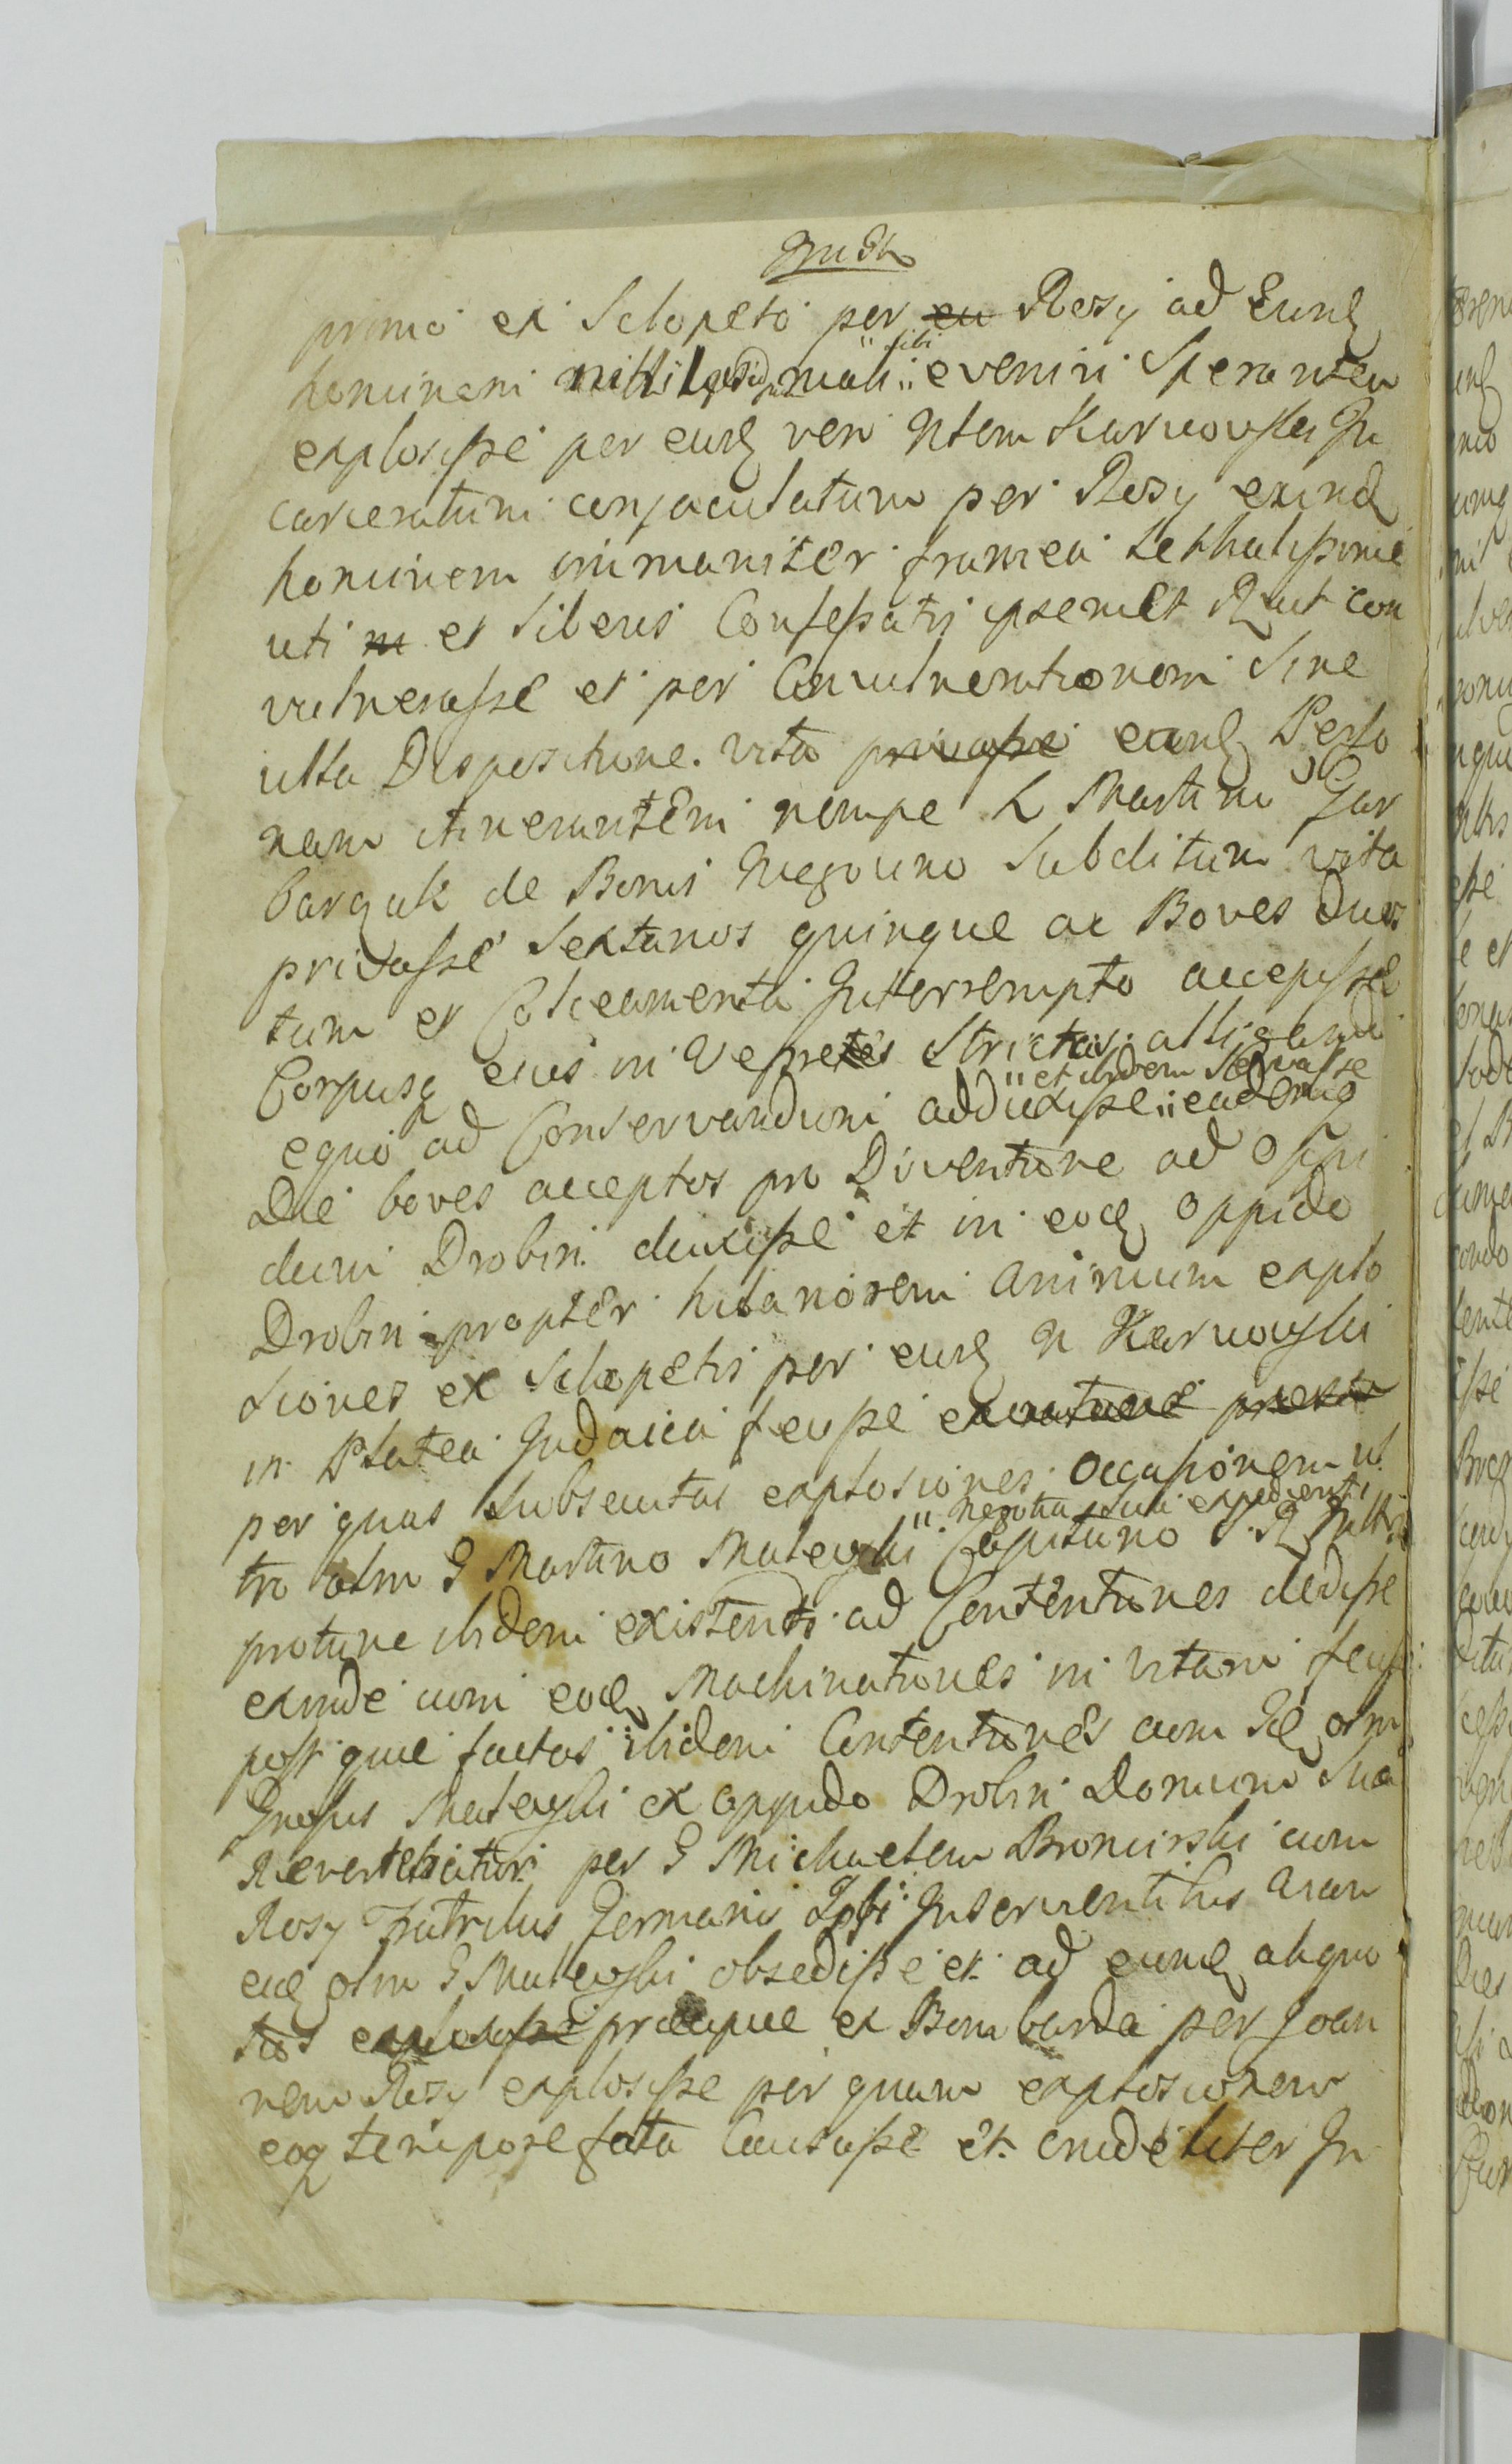 primo ex Sclopeto per eu Rosy ad Eund
hominem nihil mali :: sibi :: eveniri Sperantem
explosisse per eund vero Ntem Karwowski In
carceratum conjaculatum per Rosy exind
hominem immaniter framea Lethalissime
uti m ex liberis Confessatis ipsemet Rut con
vulnerasse et per Convulnerationem Sine
ulla Dispositione. vita privasse eand Perso
nam itinerantem nempe L Martinu Gar
barczik de Bonis Subditum vita
privasse Sextanos quinque ac Boves duos
tum et Calceamenta Interrempto accepisse
Corpusq eius in Vepretes Strictas alligand
equo ad Conservandum adduxisse :: et ibidem Servasse :: eademq
Die boves acceptos pro Diventione ad Oppi
dum Drobin duxisse et in eod Oppido
Drobin propter hilariorem animum explo
siones ex Sclopetis per eund N Karwowski
in Platea Judaica fecisse
per quas subsecutas explosiones Occasionem ul
tro olm G Martino Mateuski :: negotia sua expedienti Capitano S R
protunc ibidem existenti ad Contentiones dedisse
exinde cum eod Machinationes in vitam fecisse
post quae factas ibidem Contentiones cum olm
Mateuski ex oppido Drobin Domum Sua
Revertebatur per G Michaelem Bromirski cum
Rosy Fratribus Germanis Inservientibus
eid olm G Mateuski obsedisse et ad eund aliquo
ties explosisse praecipue ex Bombarda per Joan
nem Rosy explosisse per quam explosionem
eoq tempore fata Causasse et crudeliter In